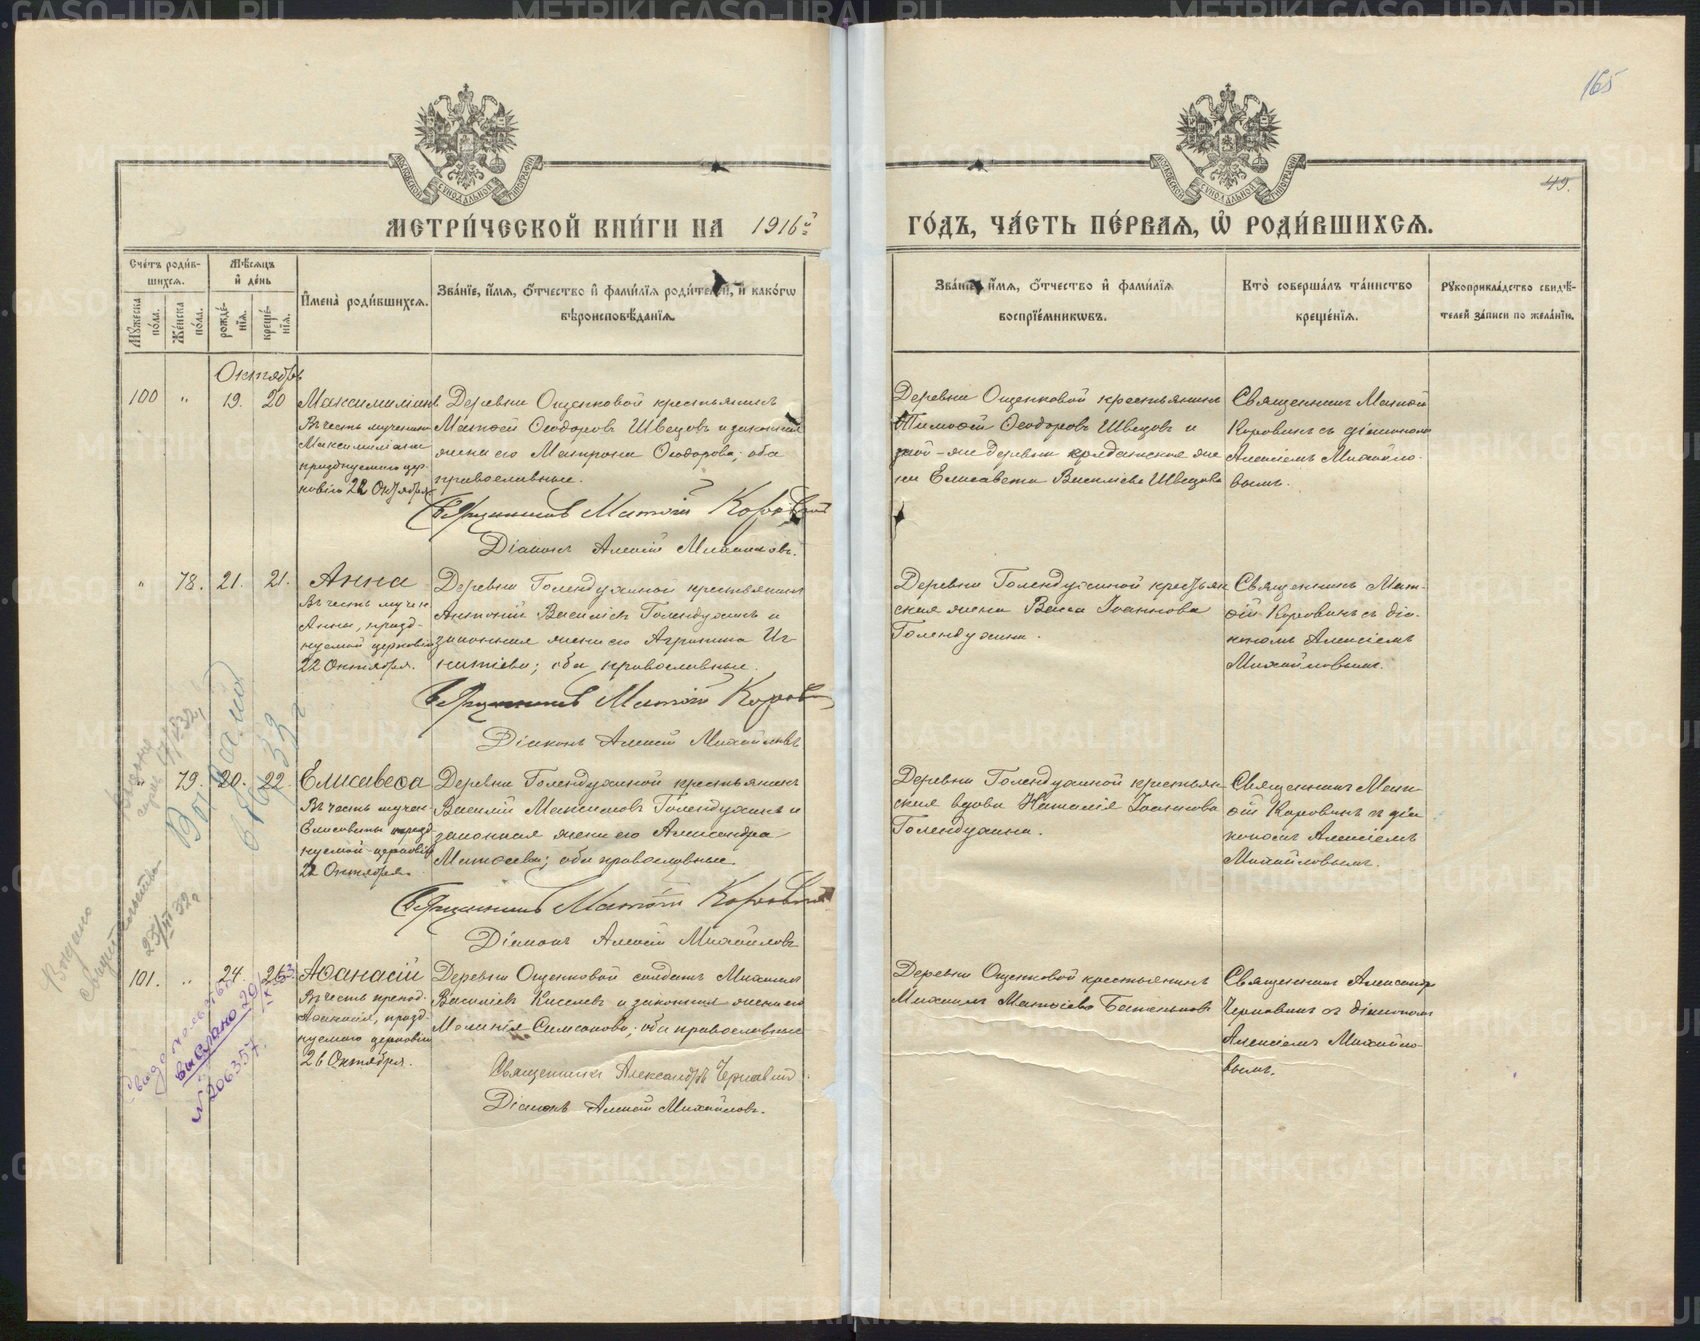 165
49.
МЕТРИ́ЧЕСКОЙ КНИ́ГИ НА 1916й
ГО́ДЪ, ЧА́СТЬ ПЕ́РВАЯ, Ѽ РОДИ́ВШИХСЯ.
Сче́тъ роди́в-
шихся.
Мѣ́сяцъ
и҆ де́нь
И҆мена̀ роди́вшихся.
Зва́нїе, и҆́мя, ѻ҆́тчество и҆ фами́лїя роди́телей, и҆ како́гѡ
вѣроисповѣ́данїя.
Мꙋ́жеска
по́ла.
Же́нска
по́ла.
рожде́-
нїя.
креще́-
нїя.
Зва́нїе, и҆́мя, ѻ҆́тчество и҆ фами́лїя
воспрїе́мникѡвъ.
Кто̀ соверша́лъ та́инство
креще́нїя.
Рꙋкоприкла́дство свидѣ́-
телей за́писи по жела́нїю.
Октябрь
100 „ 19. 20
Максимиліанъ
Въ честь мученика
Максимиліана
празднуемаго цер-
ковію 22 Октября
Деревни Ощепковой крестьянинъ
Матѳей Ѳеодоровъ Швецовъ и законная
жена его Матрона Ѳеодорова; оба
православные.
Священникъ Матѳій Коровинъ
Діаконъ Алексій Михайловъ.
Деревни Ощепковой крестьянинъ
Тимоѳей Ѳеодоровъ Швецовъ и
той-же деревни гражданская же
на Елисавета Васильева Швецова
Священникъ Матѳій
Коровинъ съ діакономъ
Алексіемъ Михайло-
вымъ.
„ 78. 21. 21.
Анна
Въ честь мучен
Анны, празд-
нуемой церковію
22 Октября.
Деревни Голендухиной крестьянинъ
Антоній Васильевъ Голендухинъ и
законная жена его Агрипина Иг-
натіева; оба православные.
Священникъ Матѳій Коровинъ
Діаконъ Алексій Михайловъ
Деревни Голендухиной крестьян
ская жена Васса Іоаннова
Голендухина.
Священникъ Мат-
ѳій Коровинъ съ діа-
кономъ Алексіемъ
Михайловымъ.
79. 20. 22.
Елисавеѳа
Въ честь мучен.
Елисаветы празд
нуемой церковію
22 Октября.
Деревни Голендухиной крестьянинъ
Василій Максимовъ Голендухинъ и
законная жена его Александра
Матѳеева; оба православные.
Священникъ Матѳій Коровинъ
Діаконъ Алексій Михайловъ
Деревни Голендухиной крестьян
ская вдова Наталія Іоаннова
Голендухина.
Священникъ Мат-
ѳій Коровинъ съ діа
кономъ Алексіемъ
Михайловымъ.
101. „ 24. 26
Аѳанасій
Въ честь препод.
Аѳанасія, празд-
нуемаго церковію
26 Октября.
Деревни Ощепковой солдатъ Михаилъ
Васильевъ Киселевъ и законная жена его
Меланія Симеонова; оба православные
Священникъ Александръ Чернавинъ
Діаконъ Алексій Михайловъ.
Деревни Ощепковой крестьянинъ
Михаилъ Матѳіевъ Батеньковъ
Священникъ Александръ
Чернавинъ съ діакономъ
Алексіемъ Михайло-
вымъ.
Выдано
свидетельство
выслано
№206357